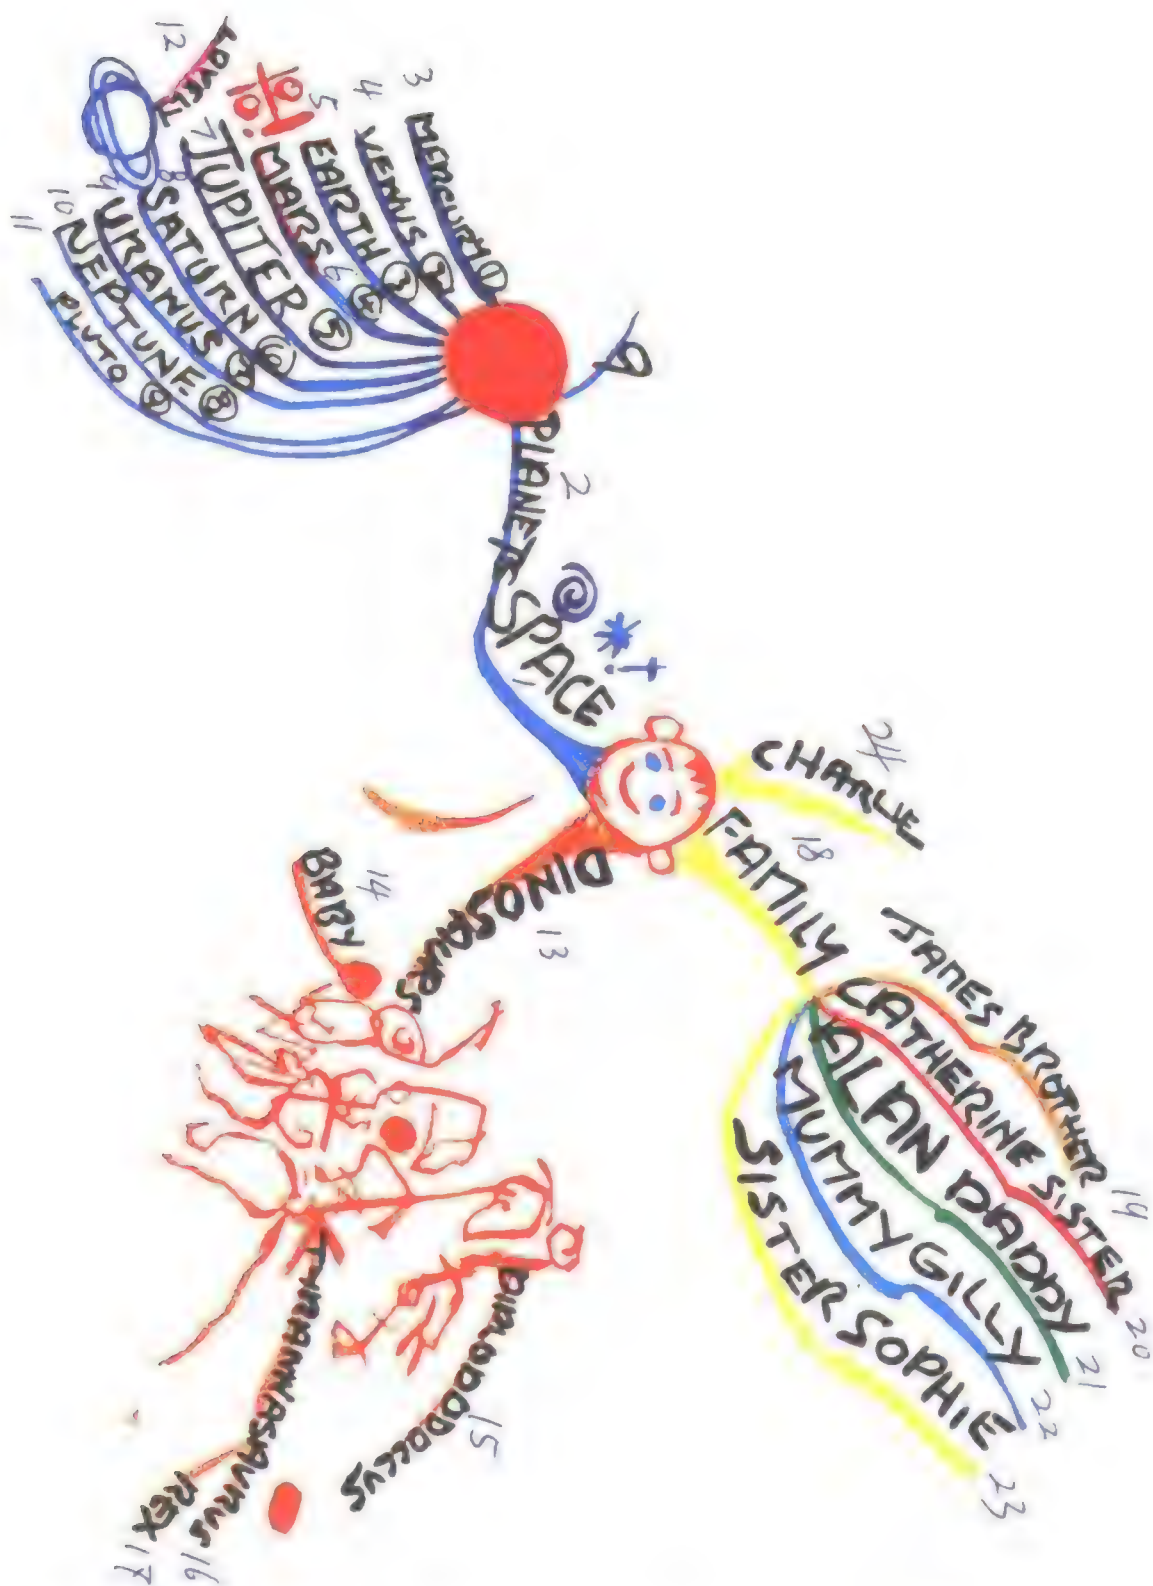 SPACE
1
PLANETS 2
9
MERCURY ① 3
VENUS ② 4
EARTH ③ 5
MARS ④ 6
JUPITER ⑤ 7
SATURN ⑥ 8
URANUS ⑦ 9
NEPTUNE ⑧ 10
PLUTO ⑨ 11
12
DINOSAURS 13
BABY 14
15
TYRANNYASAURUS 16
REX 17
FAMILY 18
JAMES BROTHER 19
CATHERINE SISTER 20
ALAN DADDY 21
MUMMY GILLY 22
SISTER SOPHIE 23
CHARLIE 24